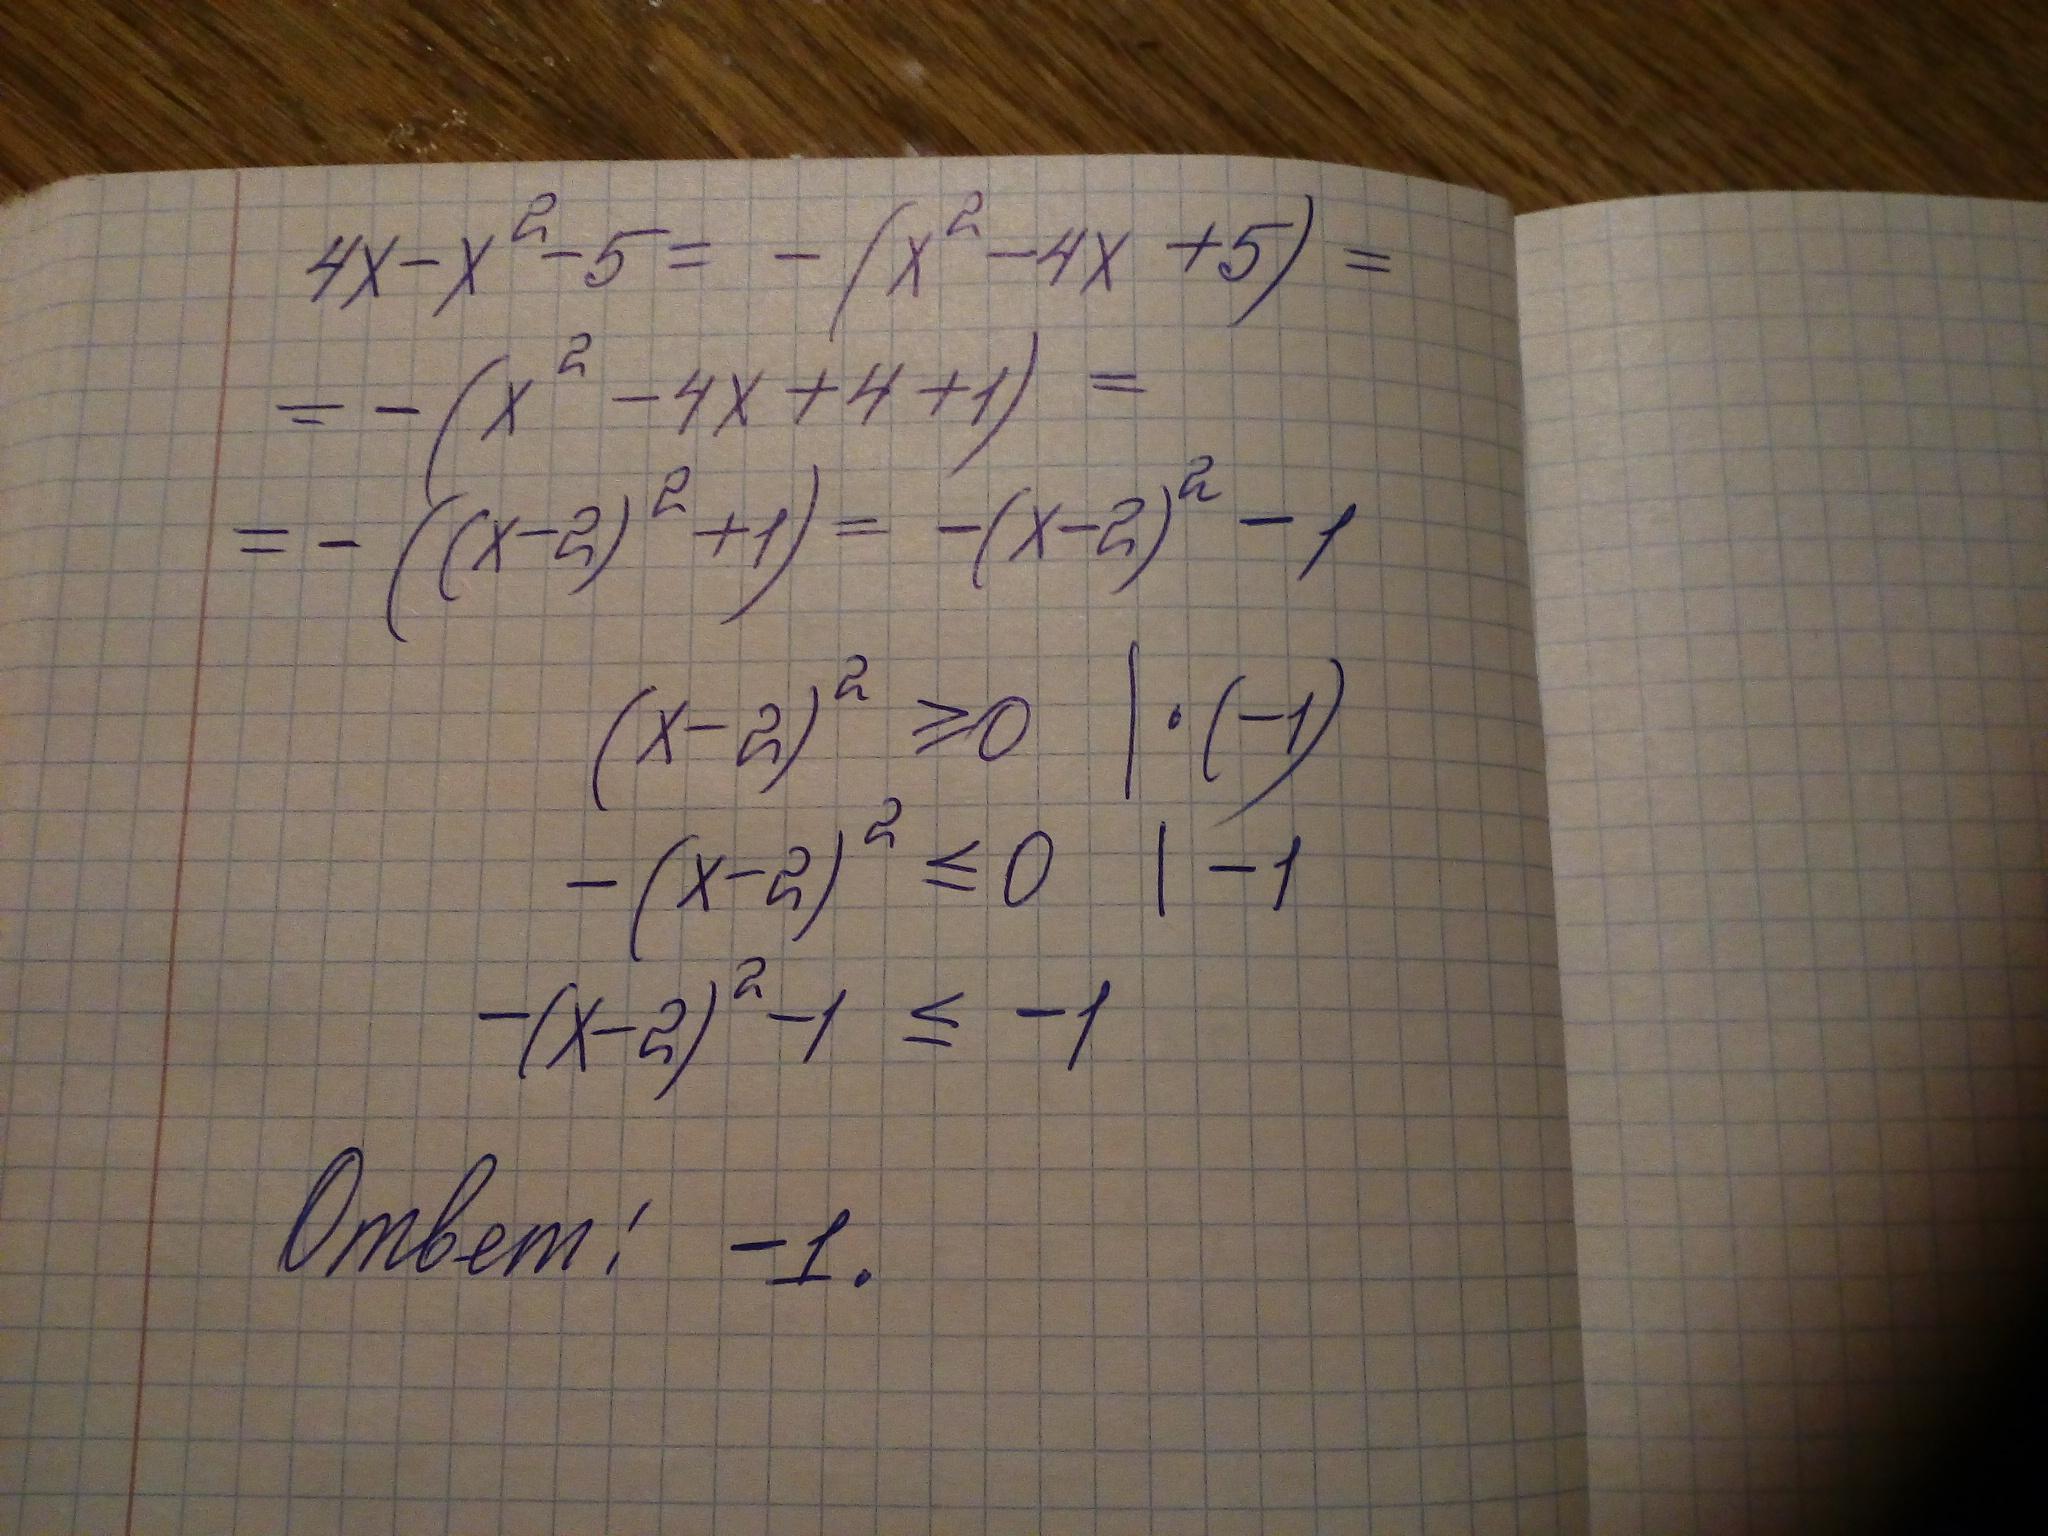 4x-x²-5= -(x²-4x+5)=
=-(x²-4x+4+1)=
=-((x-2)²+1)= -(x-2)²-1
(x-2)² ⩾0 |·(-1)
-(x-2)² ≤0 |-1
-(x-2)²-1 ≤ -1
Ответ: -1.